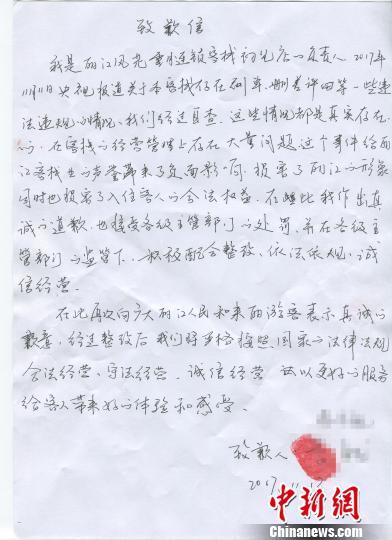 致歉信
我是丽江风花雪月连锁客栈初见店负责人 2017年
11月11日央视报道关于本客栈存在刷单、删差评四等一些违
法违规的情况、我们经过自查、这些情况都是真实存在
的、在客栈的经营管理上存在大量问题这个事件给丽
江客栈业的声誉带来了负面影响、损害了丽江的形象
同时也损害了入住客人的合法权益、在此我作出真
诚的道歉、也接受各级主管部门的处罚、并在各级主
管部门的监管下、积极配合整改、依法依规、诚
信经营。
在此再次向广大丽江人民和来丽游客表示真诚的
歉意、经过整改后我们将严格按照国家的法律法规
合法经营、守法经营、诚信经营 以更好的服务
给客人带来好的体验和感受。
致歉人
2017.11.
中新网
www.chinanews.com